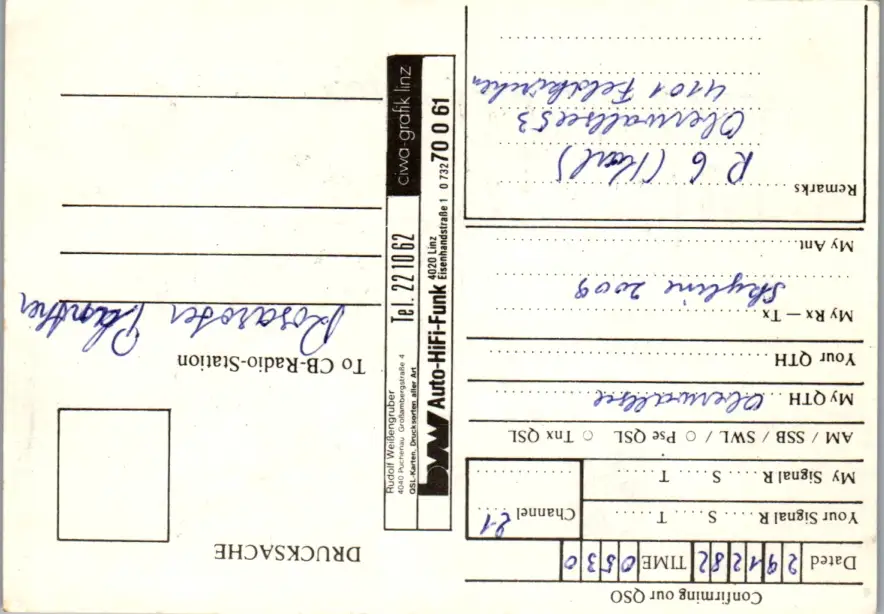 Confirming our QSO
Dated 29 12 82 TIME 0530
Your Signal R ..... S ..... T ..... 
My Signal R ..... S ..... T .....
Channel 21
AM / SSB / SWL / O Pse QSL O Tnx QSL
My QTH Oberwallsee
Your QTH
My Rx — Tx
Skyline 2009
My Ant
Remarks
R 6 (Karl)
Oberwallsee 53
4101 Feldkirchen
DRUCKSACHE
To CB-Radio-Station
Rosaroter Panther
Rudolf Weißengruber
4040 Puchenau Großambergstraße 4
QSL-Karten, Drucksorten aller Art
Tel. 22 10 62
ciwa-grafik linz
Auto-HiFi-Funk 4020 Linz
Eisenhandstraße 1 0 732 70 0 61